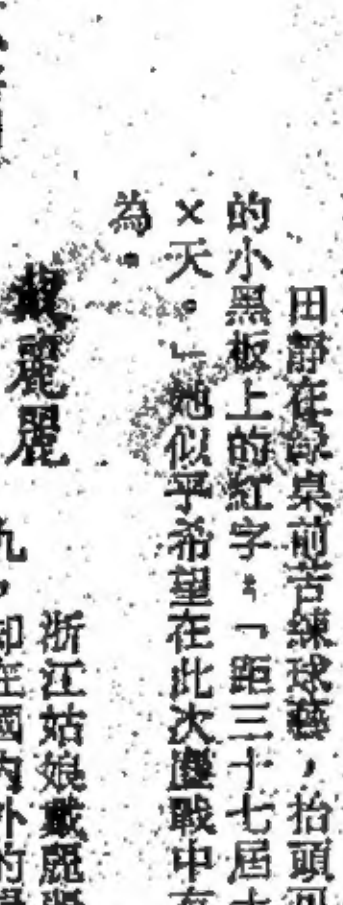 田靜在綠桌前苦練球藝，抬頭
的小黑板上的紅字：「距三十七屆
×天。」她似乎希望在此次鏖戰中有
為。
戴麗麗
浙江姑娘戴麗
九，却在國內外的